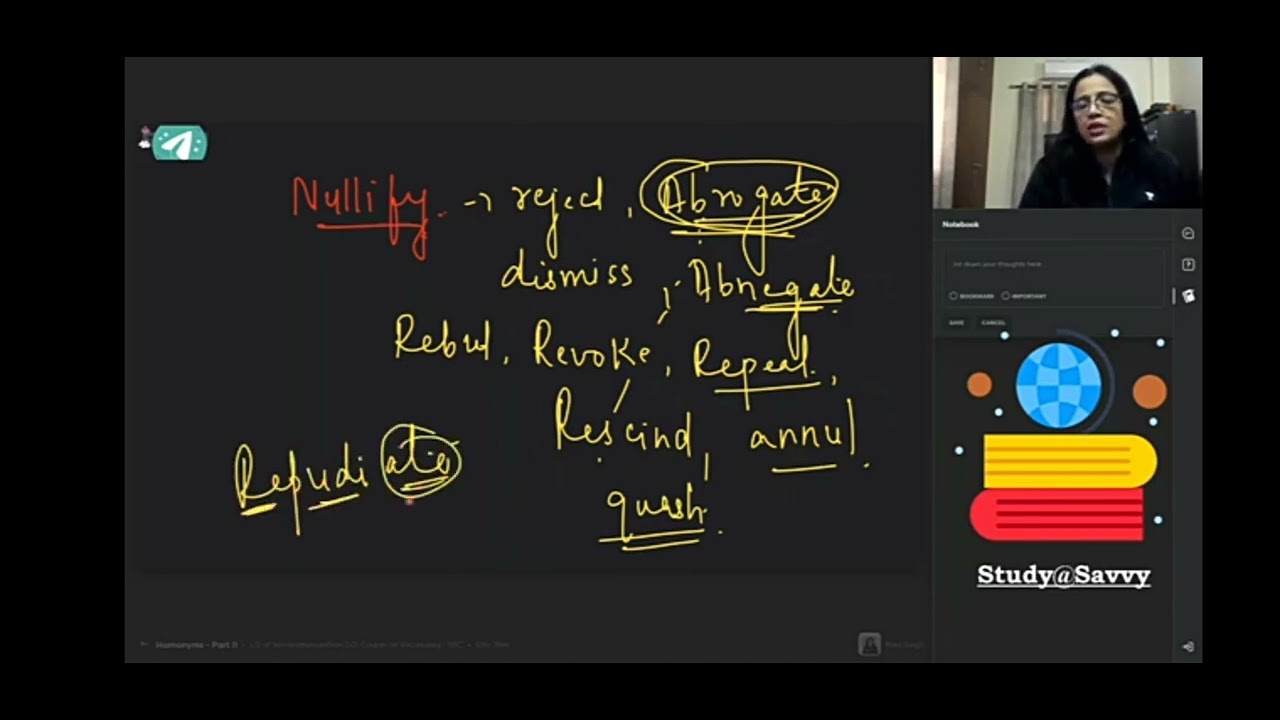 Nullify. → reject, Abrogate
dismiss, Abnegate
Rebut, Revoke, Repeal,
Rescind, annul.
Repudiate
quash.
Notebook
Jot down your thoughts here...
BOOKMARK IMPORTANT
SAVE CANCEL
Study@Savvy
← Homonyms - Part II